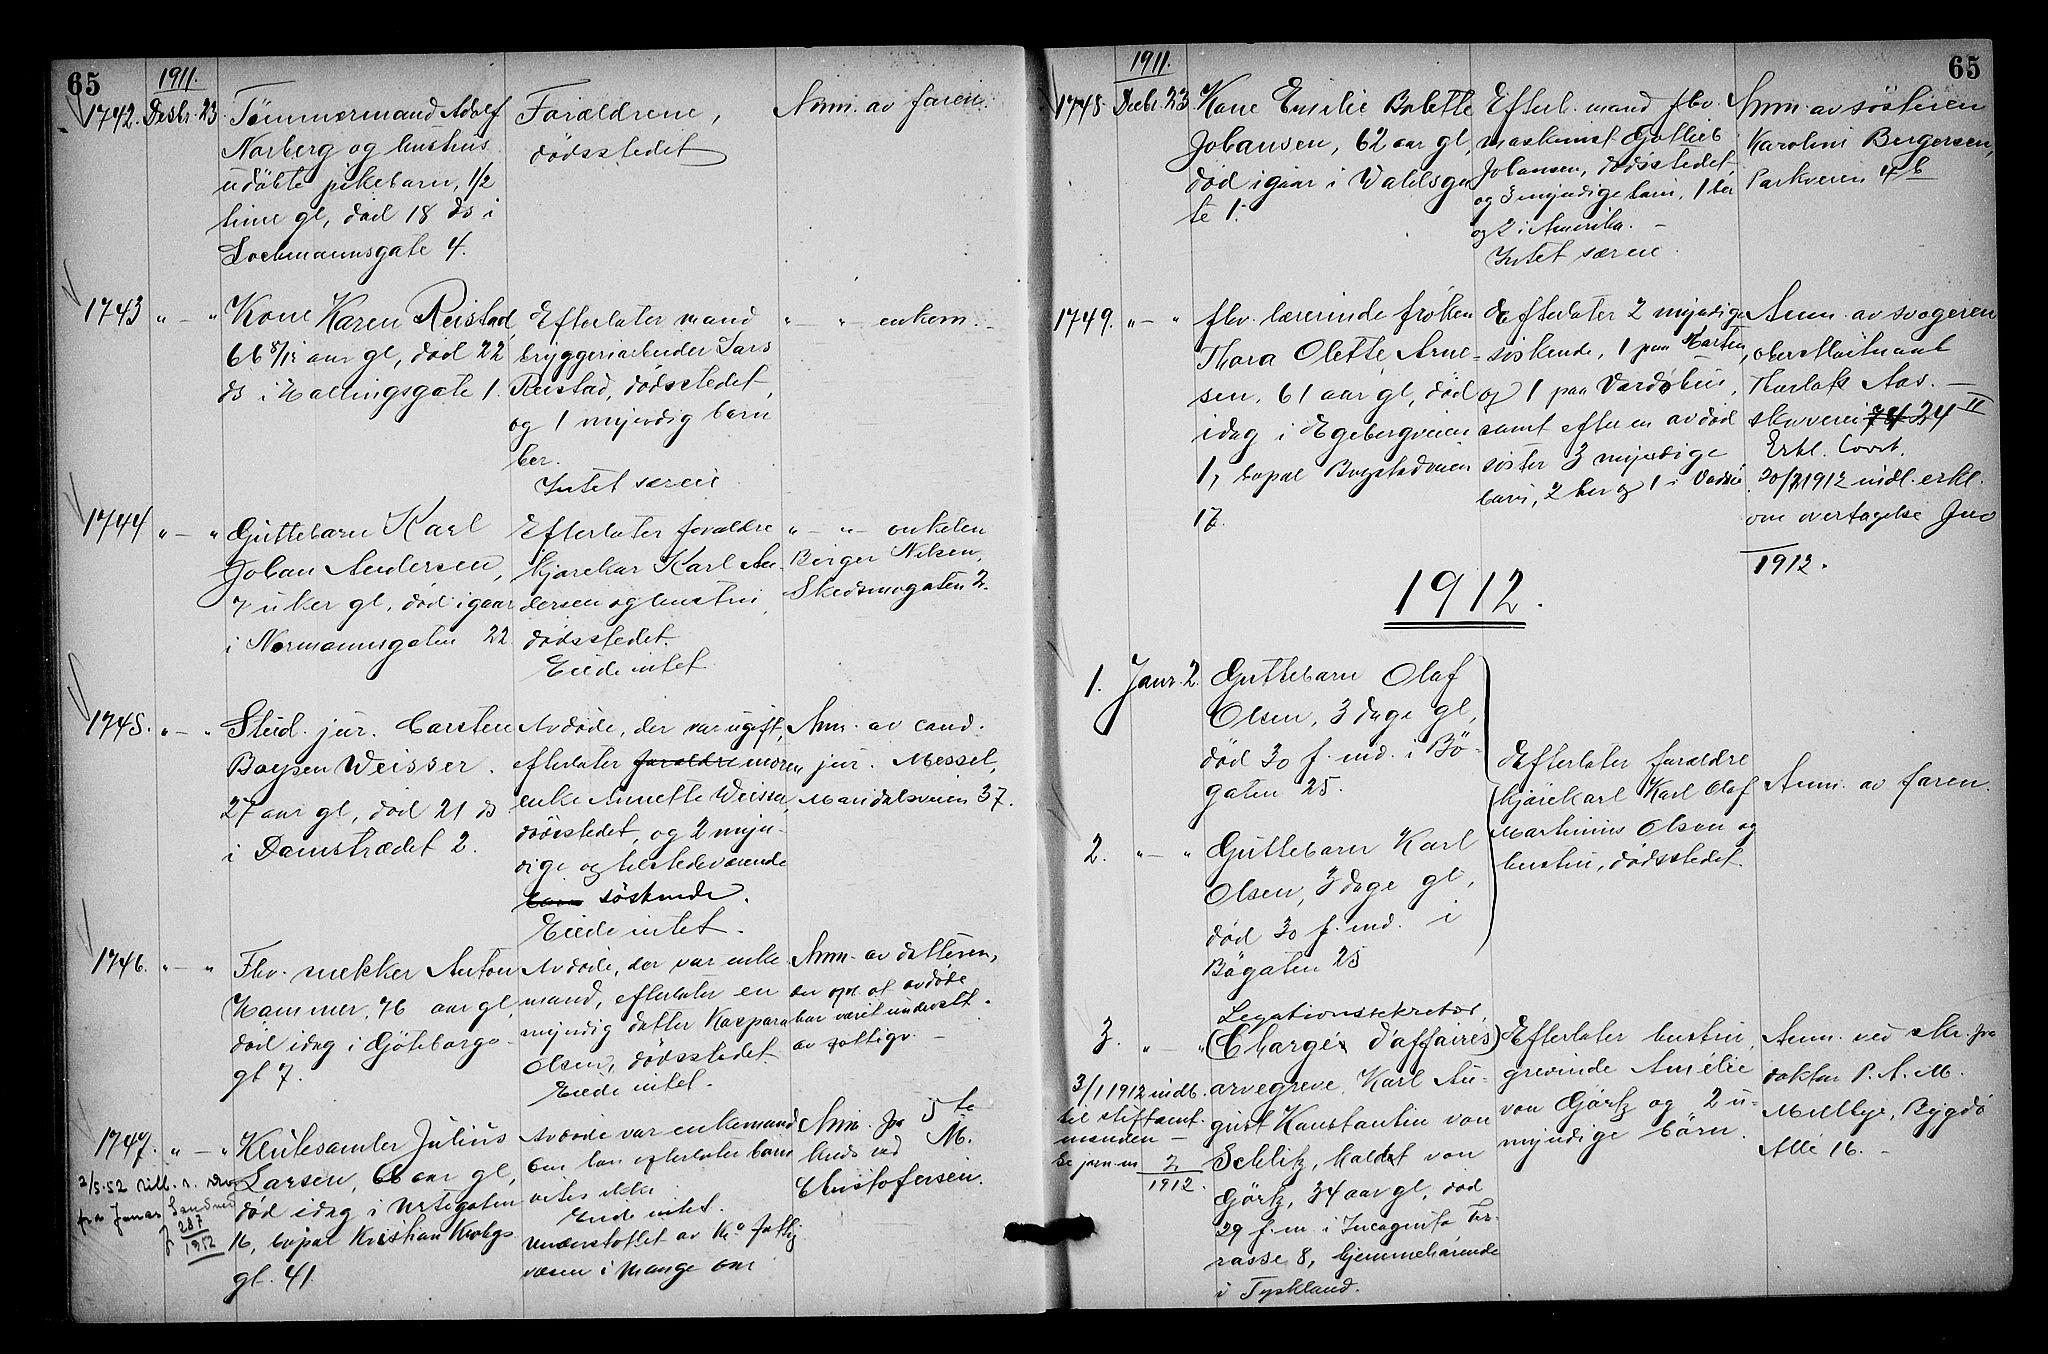 65
1911.
1742. Desbr. 23. Tømmermand Adolf
Norberg og hustrus
udøbte pikebarn, 1/2
time gl, død 18 ds i
Lochmannsgate 4.
Forældrene,
dødsstedet
Anm. av faren.
1743 " — " Kone Karen Reistad,
66 8/12 aar gl, død 22
ds i Hallingsgate 1.
Efterlater mand
bryggeriarbeider Lars
Reistad, dødsstedet,
og 1 myndig barn
her.
Intet særeie
" — " enkem. —
1744 " — " Guttebarn Karl
Johan Andersen,
7 uker gl, død igaar
i Normannsgaten 22
Efterlater forældre
kjørekar Karl An-
dersen og hustru,
dødsstedet.
Eiede intet.
" — " onkelen
Birger Nilsen,
Skedsmogaten 2.
1745. " — " Stud. jur. Carsten
Boysen Weisser.
27 aar gl, død 21 ds
i Damstrædet 2.
Avdøde, der var ugift,
efterlater forældre moren
enke Annette Weisser,
dødsstedet, og 2 myn-
dige og tilstedeværende
barn søskende.
Eiede intet.
Anm. av cand.
jur. Messel,
Maridalsveien 37.
1746. " — " Fhv. snekker Anton
Hammer, 76 aar gl,
død idag i Gøteborg-
gt 7.
Avdøde, der var enke
mand, efterlater en
myndig datter Kaspara
Olsen, dødsstedet
Eiede intet.
Anm. av datteren,
der opl. at avdøde
har været underst.
av fattigv. —
1747. " — " Klutesamler Julius
Larsen, 66 aar gl,
død idag i Urtegaten
16, bopæl Kristian Krohgs
gt. 41
2/5-52
fra Jonas Sandned
J 287
1952
Avdøde var enkemand
om han efterlater barn
vites ikke.
Eiede intet.
Understøttet av Ka. Fattig
væsen i mange aar
Anm. fra 5te
kreds ved M.
Christofersen.
65
1911.
1748 Decbr. 23 Kone Emilie Bolette
Johansen, 62 aar gl,
død igaar i Valdsga-
te 1.
Efterl. mand fhv.
maskinist Gottlieb
Johansen, dødsstedet
og 3 myndige barn, 1 her
og 2 i Amerika. —
Intet særeie.
Anm. av søsteren
Karoline Bergersen,
Parkveien 4 b
1749. " — " fhv. lærerinde frøken
Thora Olette Arne-
sen, 61 aar gl, død
idag i Egebergveien
1, bopæl Bogstadveien
17.
Efterlater 2 myndige
søskende, 1 paa Karten,
og 1 paa Vardøhus,
samt efter en avdød
søster 3 myndige
barn, 2 her og 1 i Vadsø
Anm. av svogeren
oberstløitnant
Thorlak Aas. —
skovveien 74 24 II
Erkl. Covt.
20/1 1912 indl. erkl.
om overtagelse Jno
1912.
1912.
1. Janr. 2. Guttebarn Olaf
Olsen, 3 dage gl,
død 30 f. md. i Bø-
gaten 25.
2. " — " Guttebarn Karl
Olsen, 3 dage gl,
død 30 f. md. i
Bøgaten 25
Efterlater forældre
kjørekarl Karl Olaf
Martinius Olsen og
hustru, dødsstedet.
Anm. av faren.
3. " — " Legationssekretær,
(Chargé d'affaires)
arvegreve Karl Au-
gust Konstantin von
Schlitz, kaldet von
Görtz, 34 aar gl, død
29 f. m i Incognito Ter-
rasse 8, hjemmehørende
i Tyskland.
3/1 1912 indb.
til stiftamt-
manden —
se jorn-m 2
1912.
Efterlater hustru,
grevinde Amélie
von Görtz og 2 u-
myndige børn.
Anm. ved skr. fra
doktor P. A. M.
Mellbye, Bygdø
Allé 16. —